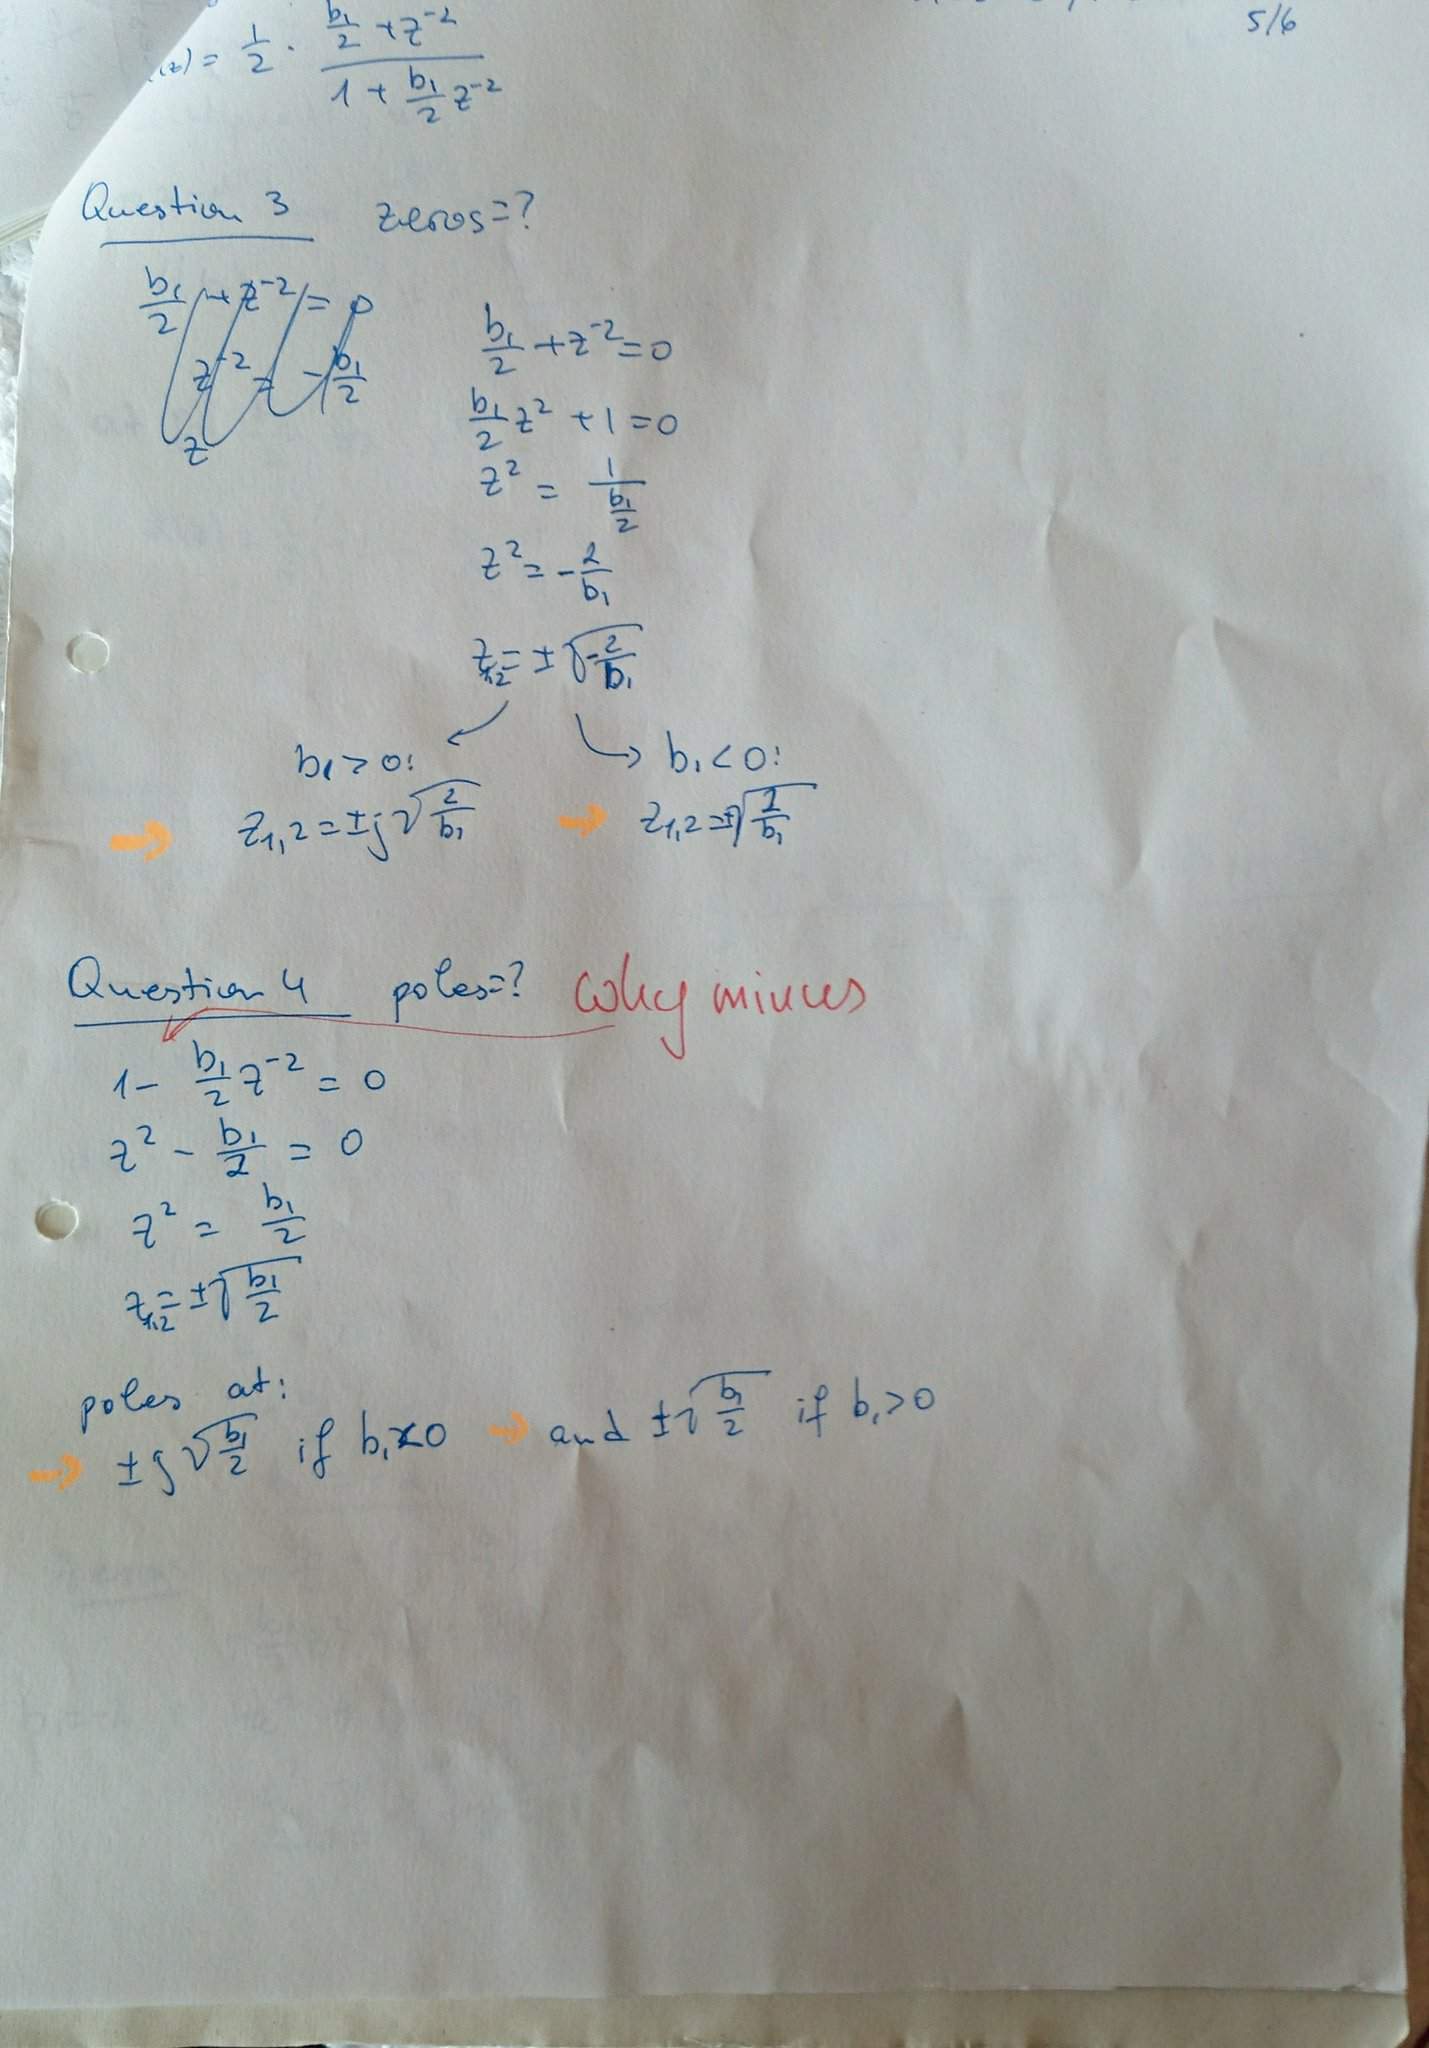 5/6
(z) = 1/2 · (b₁/2 + z⁻²)/(1 + b₁/2 z⁻²)
Question 3 zeros=?
b₁/2 + z⁻² = 0
z⁻² = - b₁/2
z
b₁/2 + z⁻² = 0
b₁/2 z² + 1 = 0
z² = 1/(b₁/2)
z² = - 2/b₁
z₁,₂ = ± √(-2/b₁)
b₁ > 0: b₁ < 0:
z₁,₂ = ±j√(2/b₁) z₁,₂ = ±√(2/b₁)
Question 4 poles=? why minus
1 - b₁/2 z⁻² = 0
z² - b₁/2 = 0
z² = b₁/2
z₁,₂ = ±√(b₁/2)
poles at:
±j√(b₁/2) if b₁<0 and ±√(b₁/2) if b₁>0